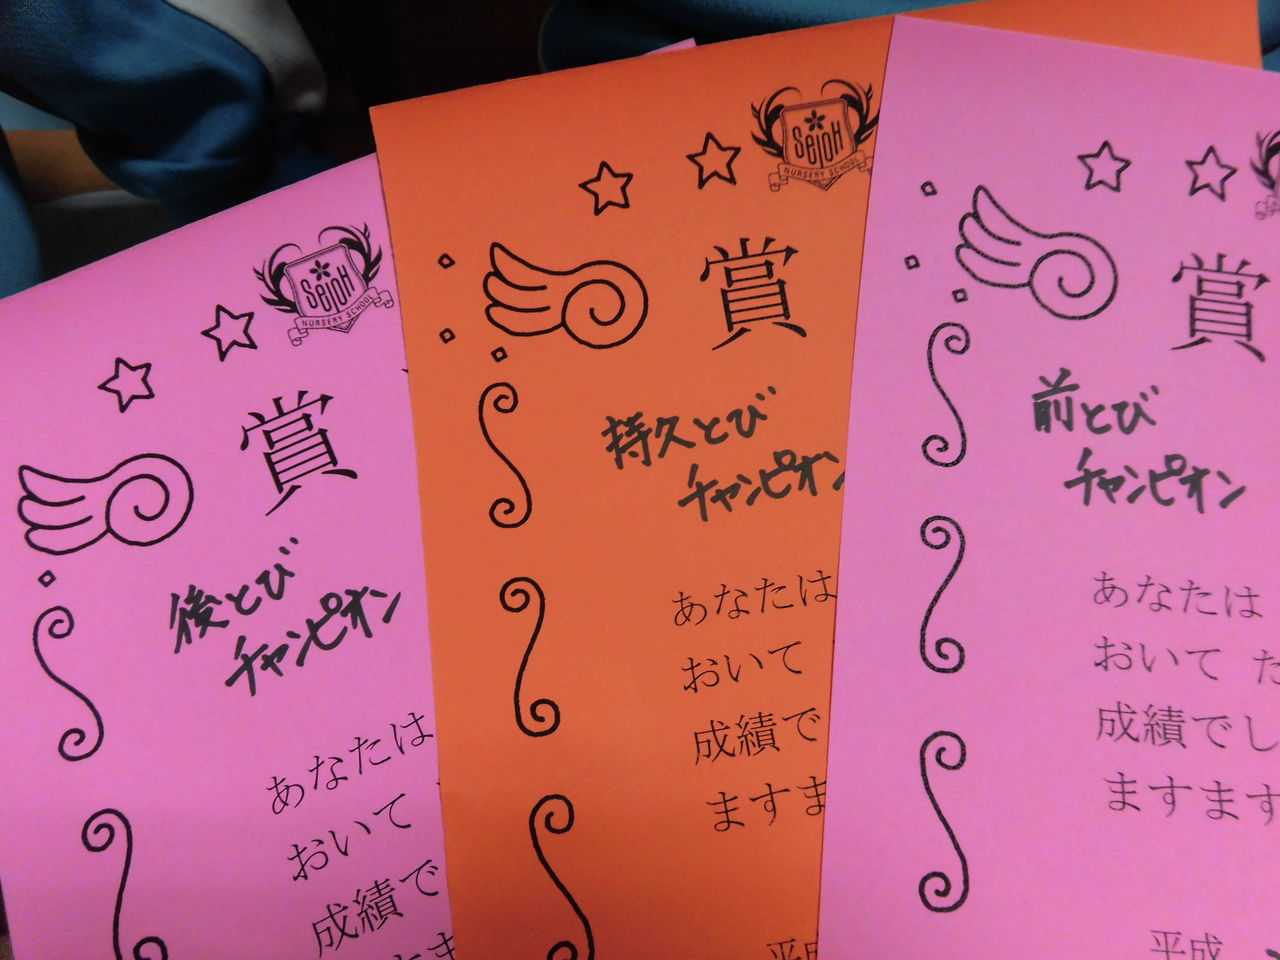 SeJoH
NURSERY SCHOOL
賞
後とび
チャンピオン
あなたは
おいて
成績で
ますま
SeJoH
NURSERY SCHOOL
賞
持久とび
チャンピオン
あなたは
おいて
成績で
ますま
平成
賞
前とび
チャンピオン
あなたは
おいて た
成績でし
ますます
平成